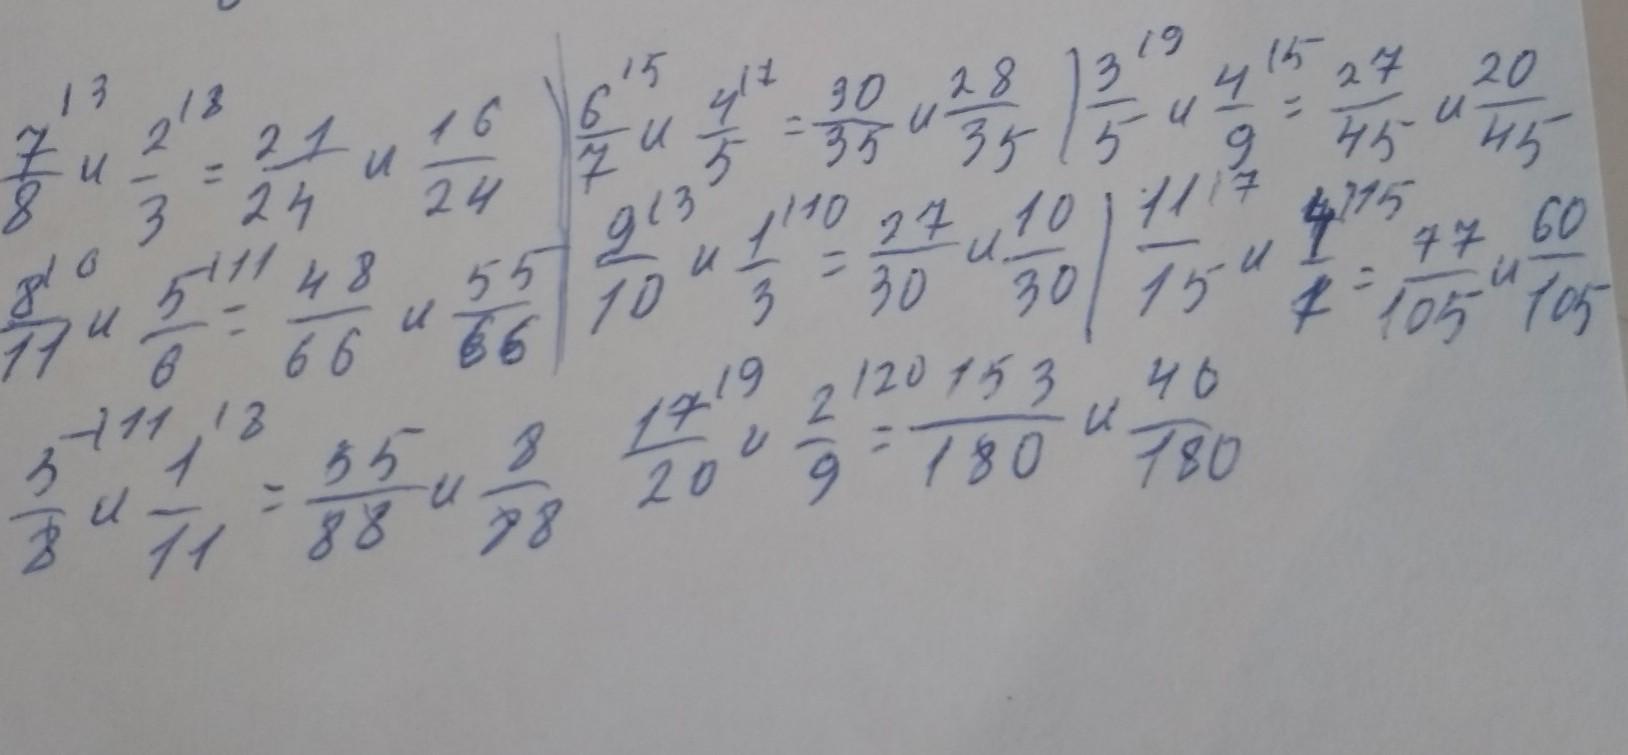 7/8 |3 и 2/3 |8 = 21/24 и 16/24 | 6/7 |5 и 4/5 |7 = 30/35 и 28/35 | 3/5 |9 и 4/9 |5 = 27/45 и 20/45
8/11 |6 и 5/6 |11 = 48/66 и 55/66 | 9/10 |3 и 1/3 |10 = 27/30 и 10/30 | 11/15 |7 и 4/7 |15 = 77/105 и 60/105
5/8 |11 и 1/11 |8 = 55/88 и 8/88 17/20 |9 и 2/9 |20 = 153/180 и 40/180